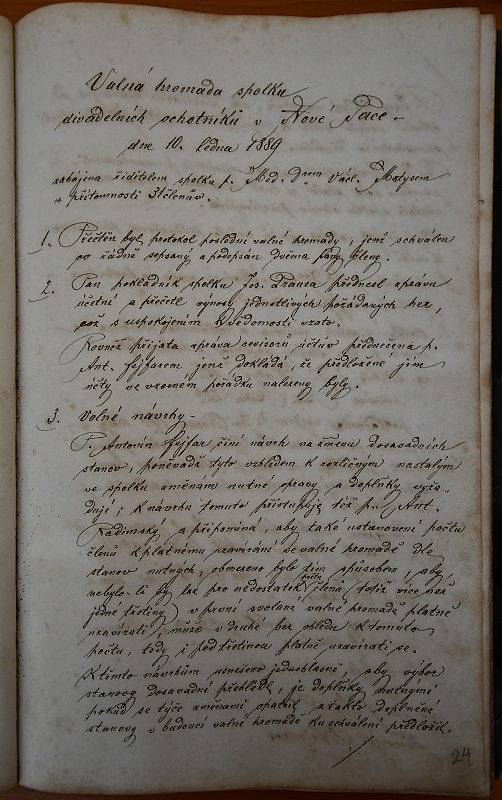 Valná hromada spolku
divadelních ochotníků v Nové Pace
dne 10. ledna 1889
zahájena ředitelem spolku p. Med. Drem Václ. Matysem
v přítomnosti 31 členův.
1. Přečtěn byl protokol poslední valné hromady, jenž schválen
po řádně sepsaný a podepsán dvěma pány členy.
2. Pan pokladník spolku Jos. Prausa přednesl zprávu
účetní a přečetl výnosy jednotlivých pořádaných her,
což s uspokojením k vědomosti vzato.
Rovněž přijata zpráva revisorů účtův přednešená p.
Ant. Fejfarem, jenž dokládá, že předložené jim
účty ve vzorném pořádku nalezeny byly.
3. Volné návrhy.
P. Antonín Fejfar činí návrh na změnu dosavadních
stanov, poněvadž tyto vzhledem k rozličným nastalým
ve spolku změnám nutné opravy a doplňky vyža-
dují; k návrhu tomuto přistupuje též p. Ant.
Radimský a připomíná, aby také ustanovení počtu
členů k platnému uzavírání ve valné hromadě dle
stanov nutných, obmezeno bylo tím způsobem, aby
nebylo-li by lze pro nedostatek počtu členů (totiž více než
jedné třetiny) v první svolané valné hromadě platně
uzavírati, může v druhé bez ohledu k tomuto
počtu, tedy i pod třetinou platně uzavírati se.
K těmto návrhům usnešeno jednohlasně, aby výbor
stanovy dosavadní přehlédl, je doplňky nutnými
pokud se týče změnami opatřil a takto doplněné
stanovy v budoucí valné hromadě ku schválení předložil.
./.
24